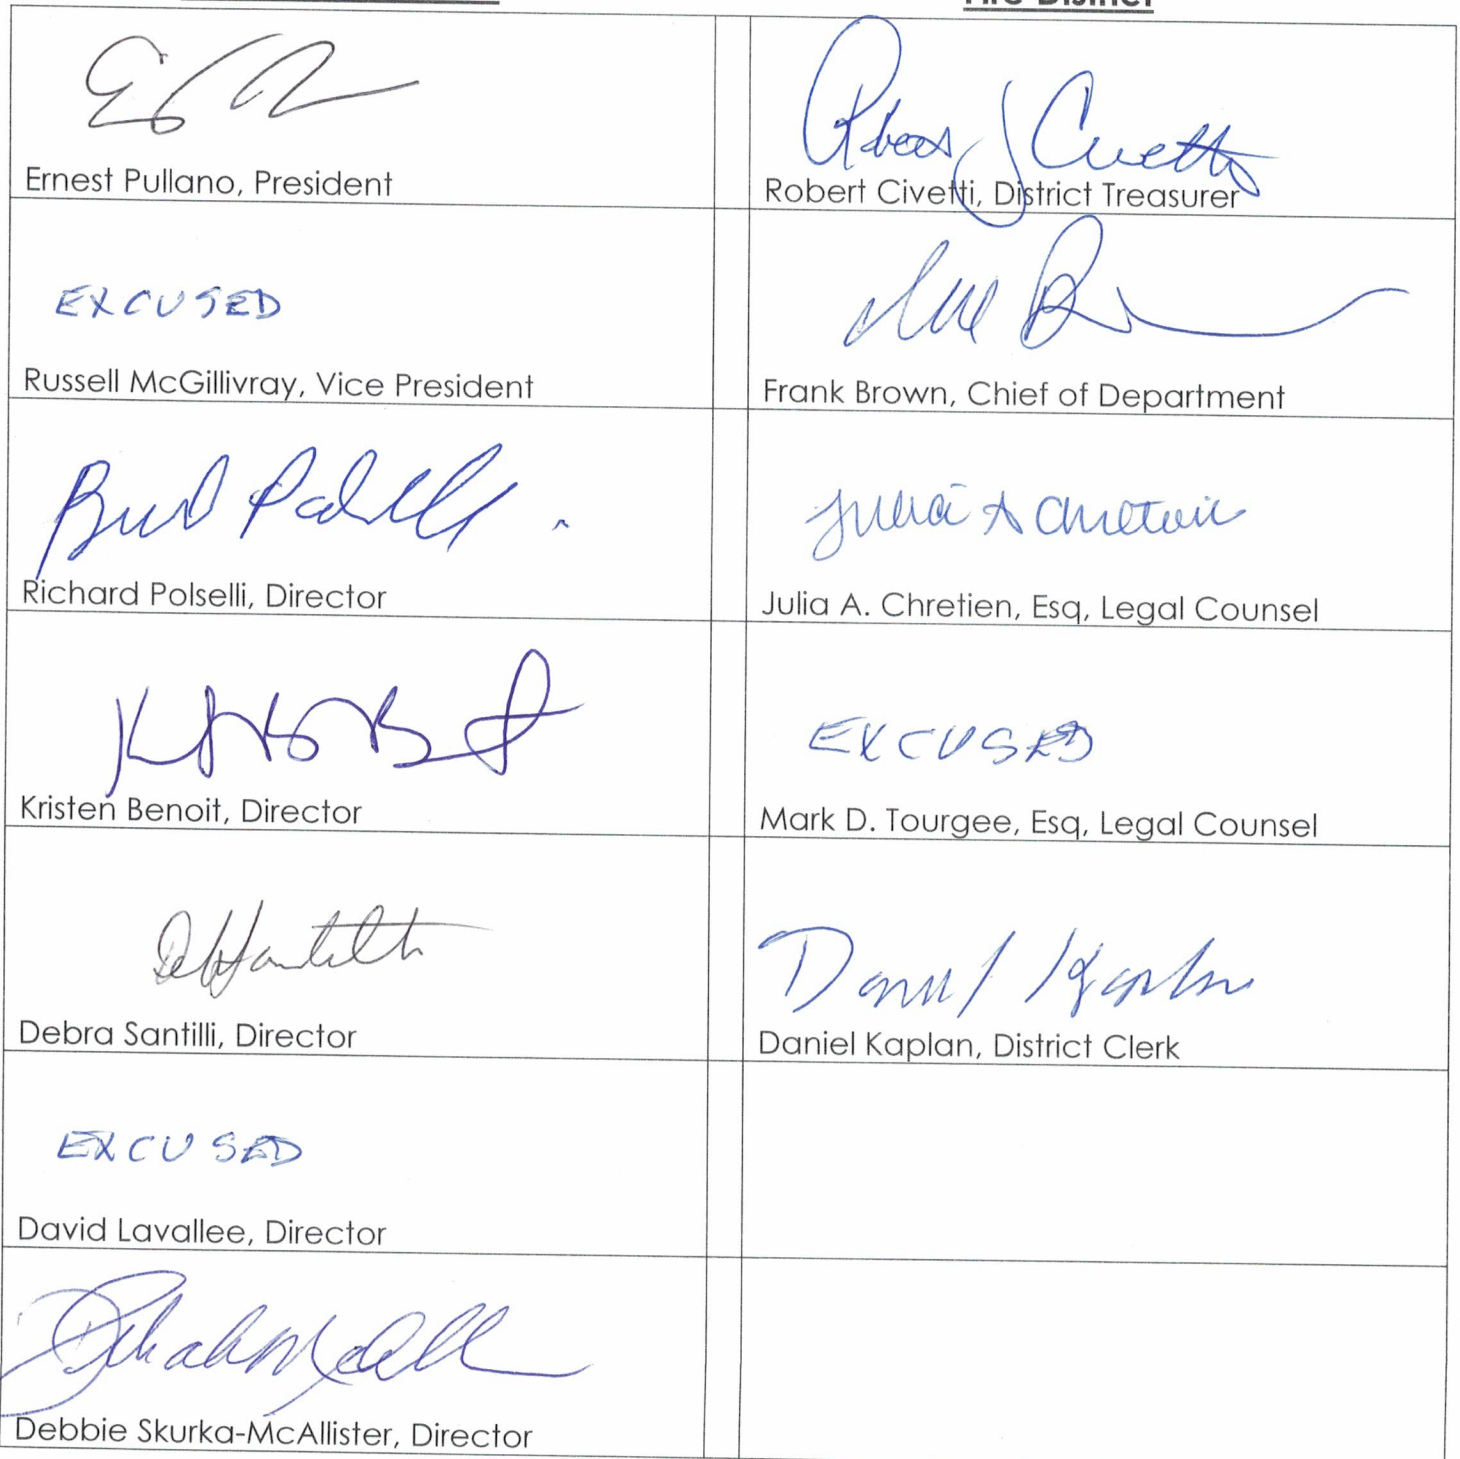 Fire District
Ernest Pullano, President
Robert Civetti, District Treasurer
EXCUSED
Russell McGillivray, Vice President
Frank Brown, Chief of Department
Richard Polselli, Director
Julia A Chretien
Julia A. Chretien, Esq, Legal Counsel
Kristen Benoit, Director
EXCUSED
Mark D. Tourgee, Esq, Legal Counsel
Debra Santilli, Director
Daniel Kaplan
Daniel Kaplan, District Clerk
EXCUSED
David Lavallee, Director
Debbie Skurka-McAllister, Director